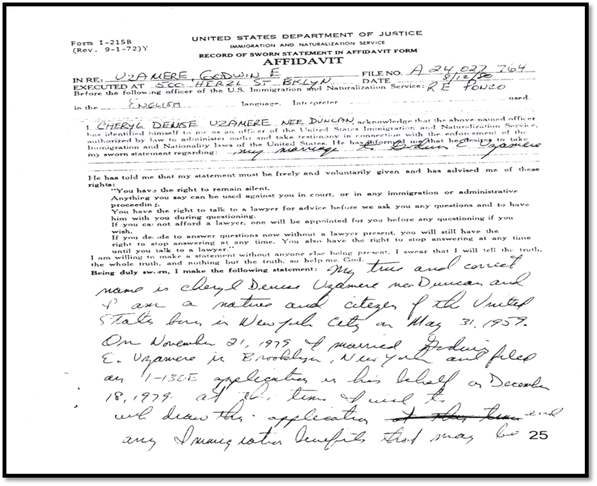 Form I-215B
(Rev. 9-1-72)Y
UNITED STATES DEPARTMENT OF JUSTICE
IMMIGRATION AND NATURALIZATION SERVICE
RECORD OF SWORN STATEMENT IN AFFIDAVIT FORM
AFFIDAVIT
IN RE: UZAMERE GODWIN E FILE NO. A 24 027 764
EXECUTED AT 500 HERZL ST BKLYN DATE 8/12/80
Before the following officer of the U.S. Immigration and Naturalization Service: R E PONZO
in the ENGLISH language. Interpreter used.
I, CHERYL DENISE UZAMERE NEE DUNCAN, acknowledge that the above named officer
has identified himself to me as an officer of the United States Immigration and Naturalization Service,
authorized by law to administer oaths and take testimony in connection with the enforcement of the
Immigration and Nationality laws of the United States. He has informed me that he desires to take
my sworn statement regarding: my marriage to Godwin Uzamere
He has told me that my statement must be freely and voluntarily given and has advised me of these
rights:
"You have the right to remain silent.
Anything you say can be used against you in court, or in any immigration or administrative
proceeding.
You have the right to talk to a lawyer for advice before we ask you any questions and to have
him with you during questioning.
If you cannot afford a lawyer, one will be appointed for you before any questioning if you
wish.
If you decide to answer questions now without a lawyer present, you will still have the
right to stop answering at any time. You also have the right to stop answering at any time
until you talk to a lawyer."
I am willing to make a statement without anyone else being present. I swear that I will tell the truth,
the whole truth, and nothing but the truth, so help me God.
Being duly sworn, I make the following statement: My true and correct
name is Cheryl Denise Uzamere nee Duncan and
I am a native and citizen of the United
States born in New York City on May 31, 1959.
On November 21, 1979 I married Godwin
E. Uzamere in Brooklyn, New York and filed
an I-130E application in his behalf on December
18, 1979. at this time I wish to
withdraw this application at this time and
any Immigration benefits that may be 25